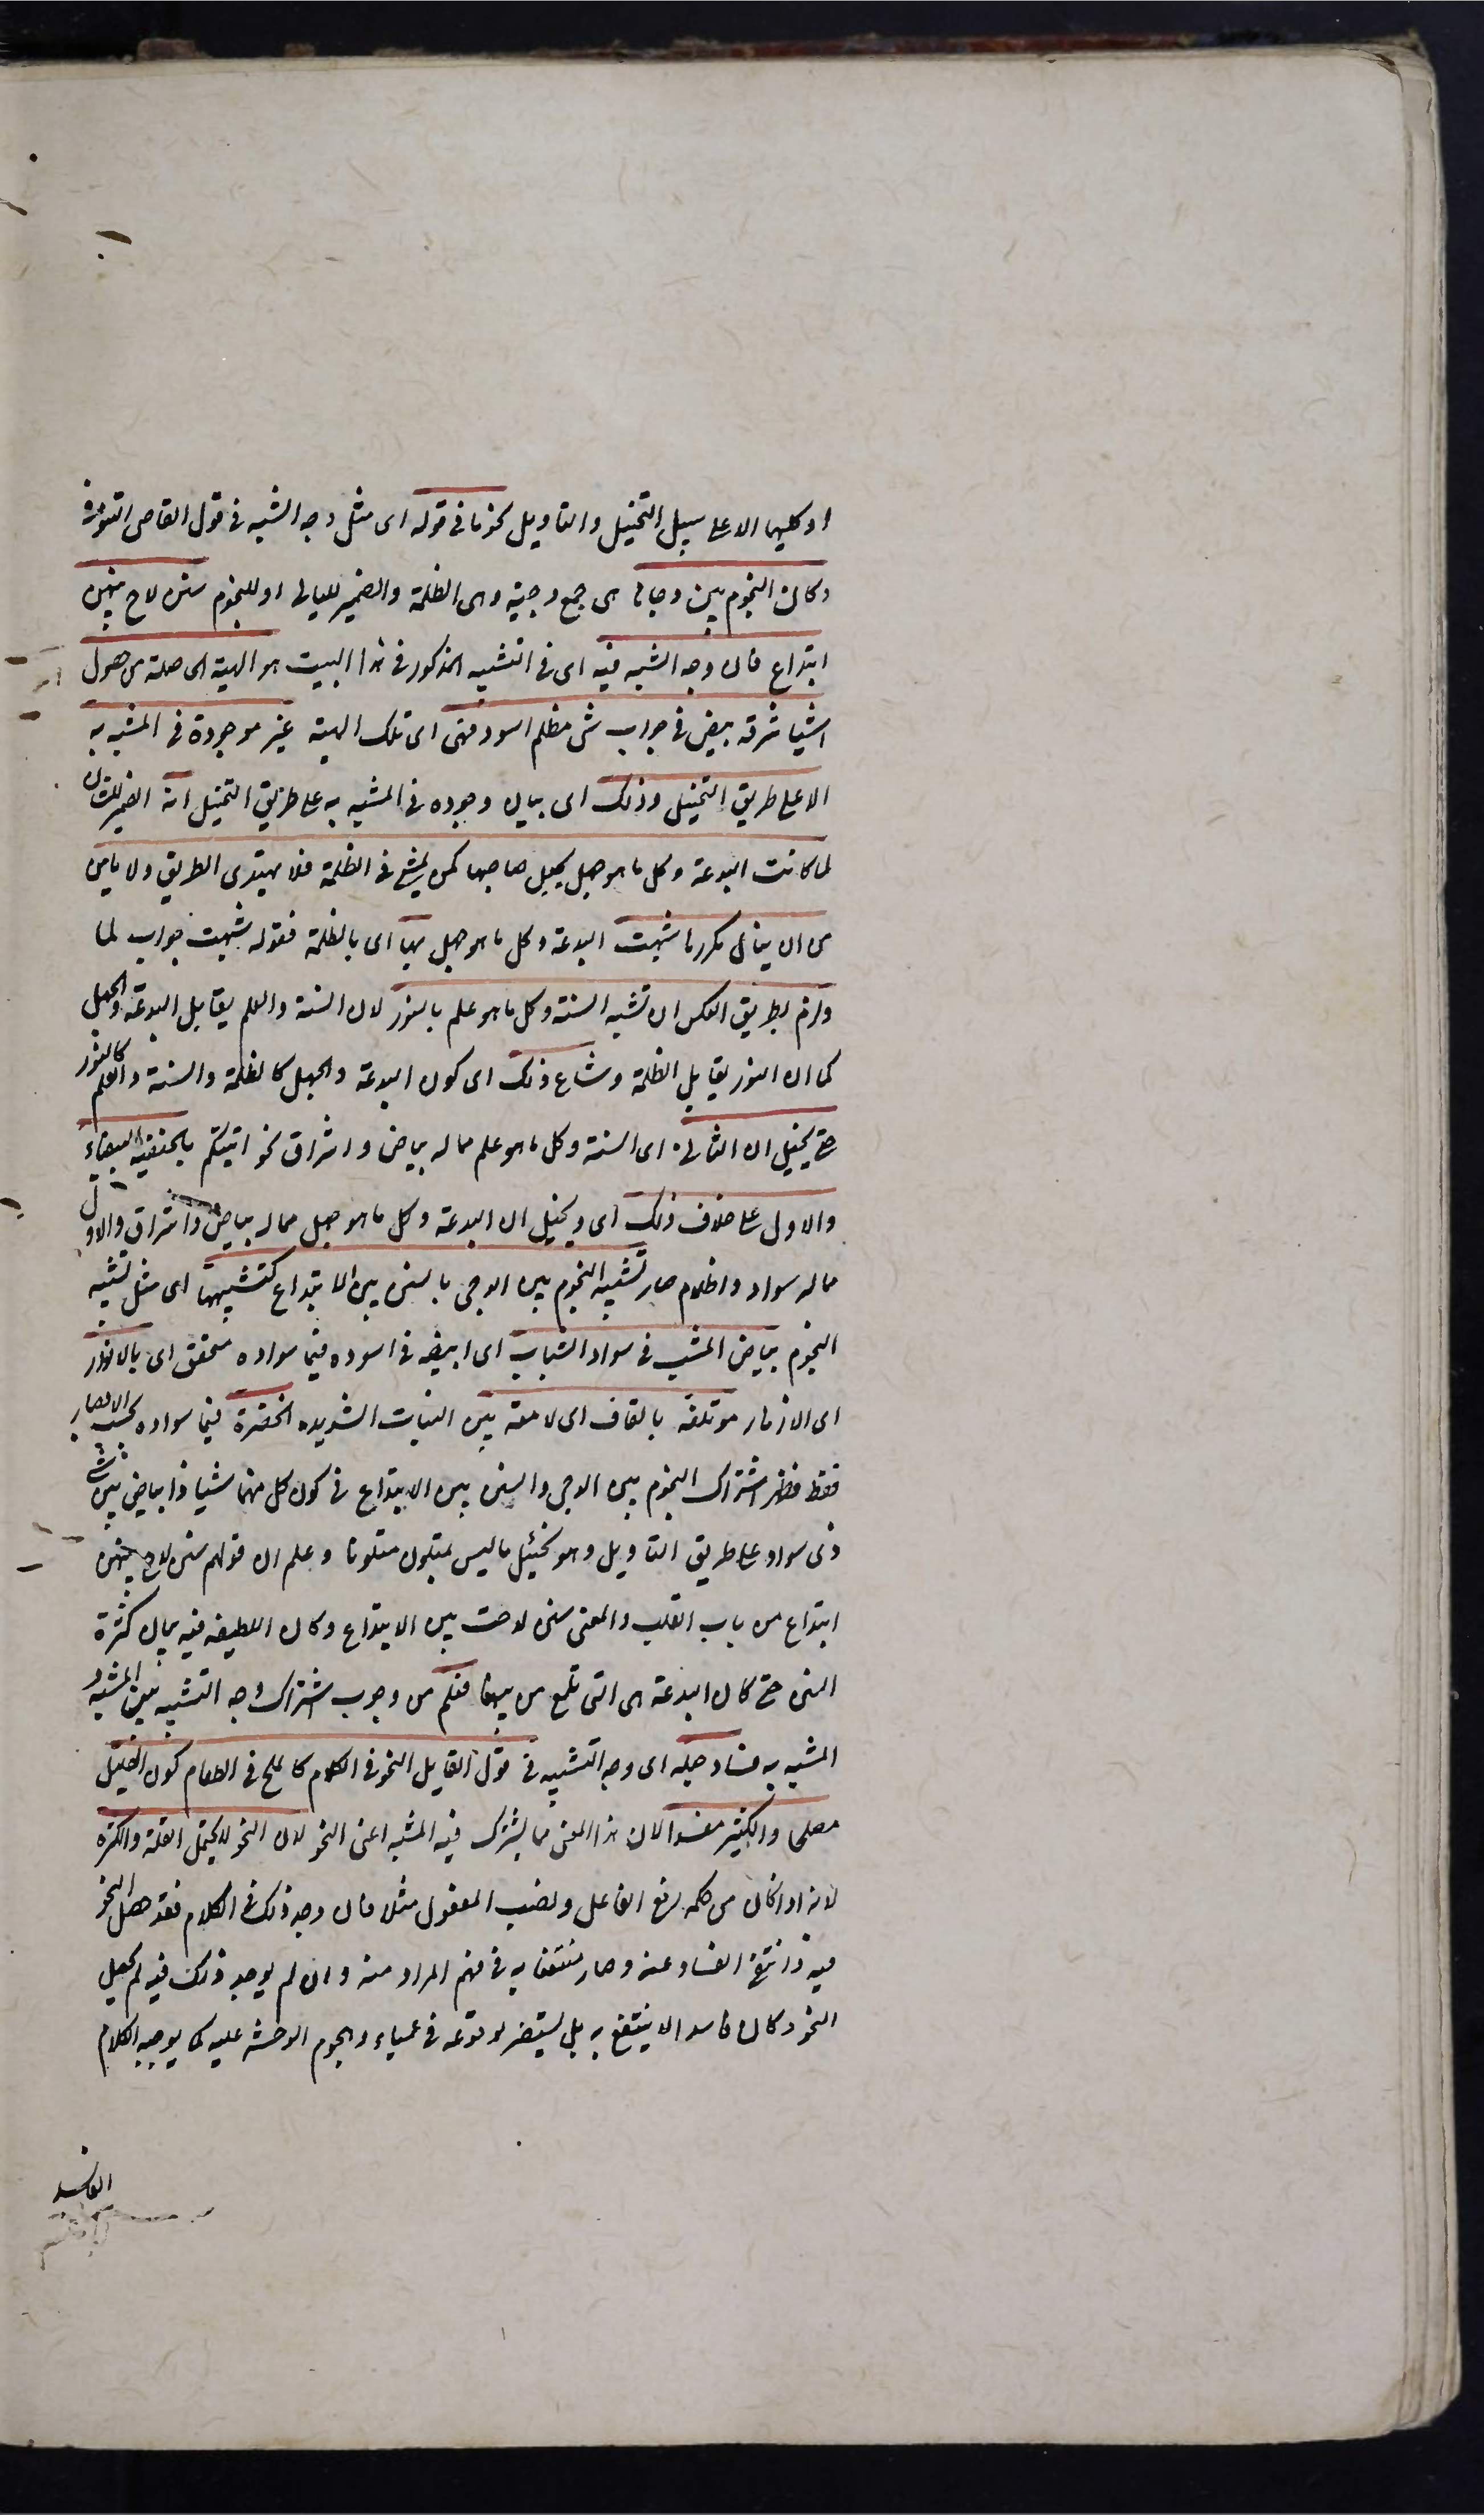 او كليهما الا على سبيل التخييل والتاويل نحو ما فى قوله اى مثل وجه الشبه فى قول القاضى التنوخى
وكان النجوم بين دجاها هى جمع دجية وهى الظلمة والضمير لليالى او للنجوم سنن لاح بينهن
ابتداع فان وجه الشبه فيه اى فى التشبيه المذكور فى هذا البيت هو الهيئة الحاصلة من حصول
اشيا مشرقة بيض فى جوانب شى مظلم اسود فهى اى تلك الهيئة غير موجودة فى المشبه به
الا على طريق التخييل وذلك اى بيان وجوده فى المشبه به على طريق التخييل انه الضمير للشان
لما كانت البدعة وكل ما هو جهل يجعل صاحبها كمن يمشى فى الظلمة فلا يهتدى الطريق ولا يامن
من ان ينال مكروها شبهت البدعة وكل ما هو جهل بها اى بالظلمة فقوله شبهت جواب لما
ولزم بطريق العكس ان تشبه السنة وكل ما هو علم بالنور لان السنة والعلم يقابل البدعة والجهل
كما ان النور يقابل الظلمة وشاع ذلك اى كون البدعة والجهل كالظلمة والسنة والعلم كالنور
حتى يخيل ان الثانى اى السنة وكل ما هو علم مما له بياض واشراق نحو اتيتكم بالحنفية البيضاء
والاول على خلاف ذلك اى ويخيل ان البدعة وكل ما هو جهل مما له بياض واشراق والاول
ما له سواد واظلام صار تشبيه النجوم بين الدجى بالسنن بين الابتداع كتشبيهها اى مثل تشبيه
النجوم ببياض المشيب فى سواد الشباب اى ابيضه فى اسوده فيما سواده متحقق اى بالانوار
اى الازهار موتلقة بالقاف اى لامعة بين النبات الشديده الخضرة فيما سواده بحسب الابصار
فقط فظهر اشتراك النجوم بين الدجى والسنن بين الابتداع فى كون كل منهما شيا ذا بياض بين شى
ذى سواد على طريق التاويل وهو تخييل ما ليس بمتلون متلونا وعلم ان قولهم سنن لاح بينهن
ابتداع من باب القلب والمعنى سنن لاحت بين الابتداع وكان اللطيفة فيه بيان كثرة
السنن حتى كان البدعة هى التى تلمع من بينها فعلم من وجوب اشتراك وجه التشبيه بين المشبه و
المشبه به فساد جعله اى وجه التشبيه فى قول القايل النحو فى الكلام كالملح فى الطعام كون القليل
مصلحا والكثير مفسدا لان هذا المعنى مما يشترك فيه المشبه اعنى النحو لان النحو لا يحتمل القلة والكثرة
لانه اذا كان من حكمه رفع الفاعل ونصب المفعول مثلا فان وجد ذلك فى الكلام فقد حصل النحو
فيه وانتفى الفساد عنه وصار منتفعا به فى فهم المراد منه وان لم يوجد ذلك فيه لم يحصل
النحو وكان فاسدا لا ينتفع به بل يستضر لوقوعه فى عمياء وهجوم الوحشة عليه كما يوجبه الكلام
الفاسد